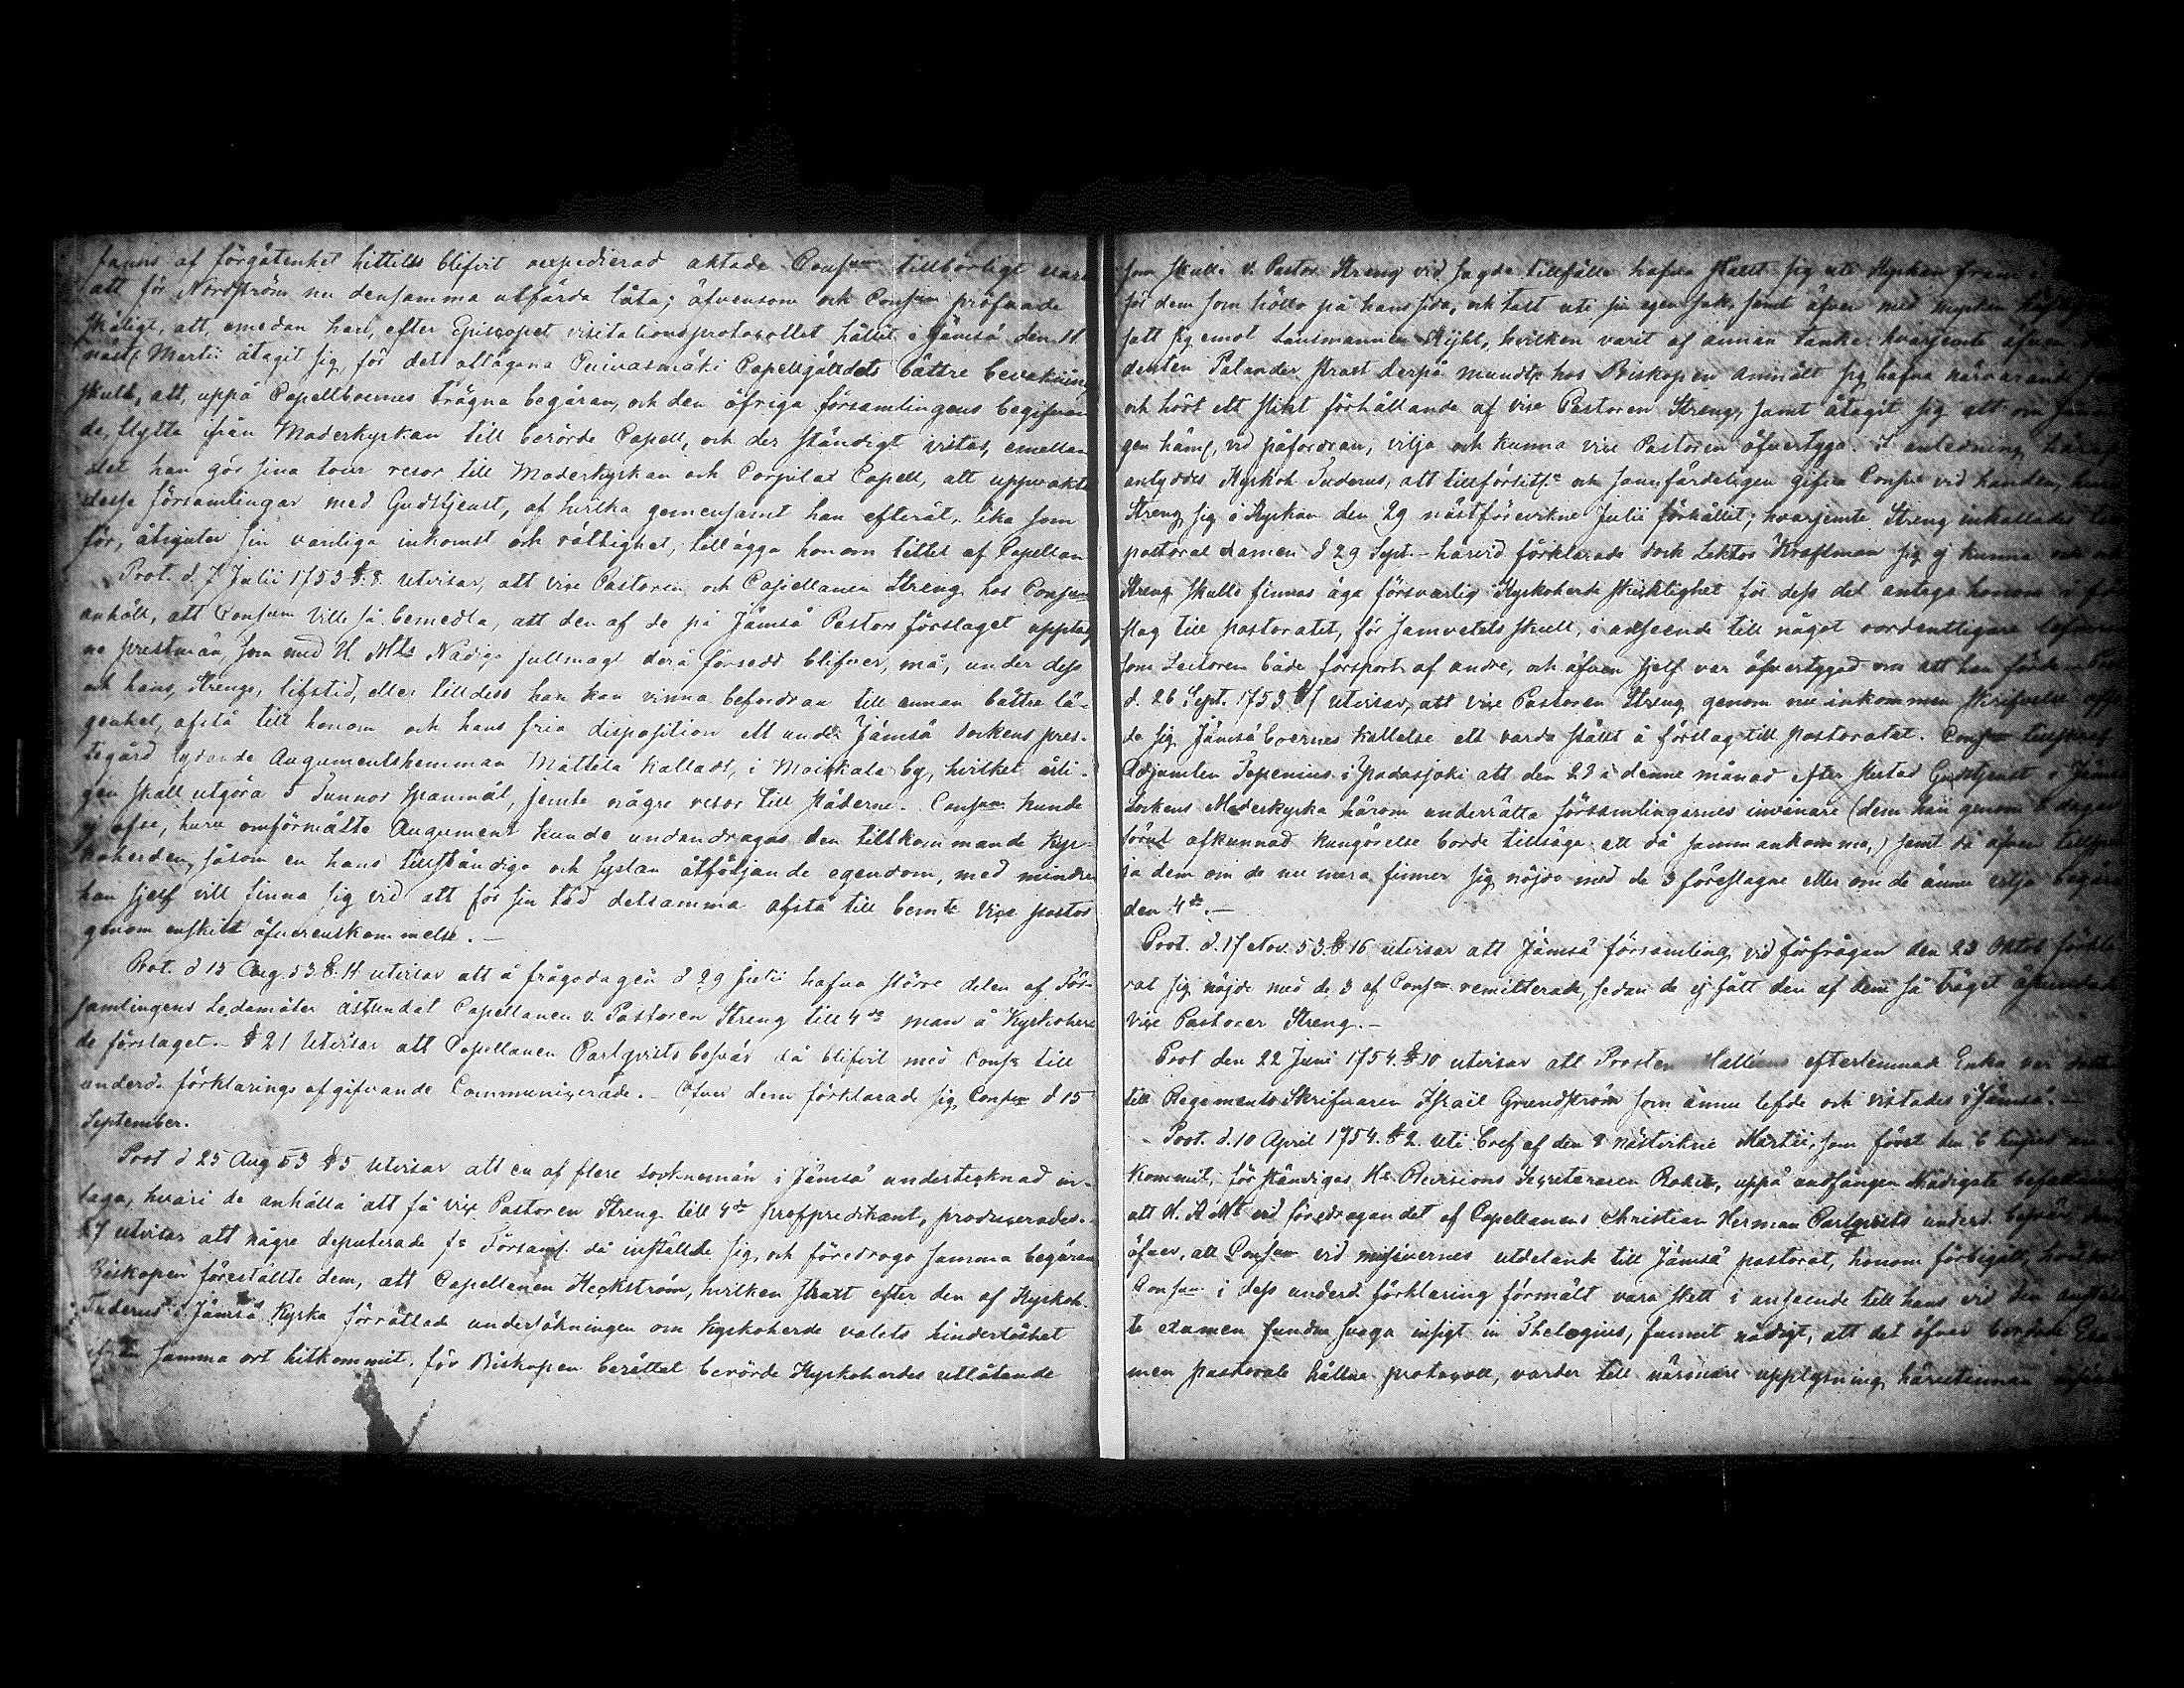 fanns af förgätenhet hittills blifvit oexpedierad aktade Consum tillbörligt vara
att för Nordström nu densamma utfärda låta; äfvensom och Consum pröfvade
skäligt, att, emedan han, efter Episcopet visitationsprotocollet hållet i Jämsä den 11
näst. Martii åtagit sig, för det aflägna Puivasmäki Capellgälldets bättre bevakning
skull, att, uppå Capellboernes trägna begäran, och den öfriga församlingens begifvan
de, flytta ifrån Moderkyrkan till berörde Capell, och der ständigt vistas, emellan
det han gör sina tour resor till Moderkyrkan och Corpilax Capell, att uppvakta
desse församlingar med Gudstjenst, af hvilka gemensamt han efteråt, lika som
för, åtnjuter sin vanliga inkomst och rättighet, tillägga honom tittel af Capellan
Prot. d. 7 Julii 1753 §. 8. utvisar, att vice Pastoren och Capellanen Streng hos Consum
anhöll, att Consum ville så bemedla, att den af de på Jämsä Pastors förslaget upptag
ne prestmän, som med K. Mts Nådiga fullmagt derå försedd blifver, må, under dess
och hans, Strengs, lifstid, eller tilldess han kan vinna befordran till annan bättre lä-
genhet, afstå till honom och hans fria disposition ett under Jämsä Sockens pres-
tegård lydande Augumentshemman Mattila kalladt, i Moiskala by, hvilket årli-
gen skall utgöra 5 Tunnor spanmål, jemte några resor till städerne. Consum kunde
ej afse, huru omförmälte Augument kunde undandragas den tillkommande Kyr-
koherden, såsom en hans tillständiga och syslan åtföljande egendom, med mindre
han sjelf vill finna sig vid att för sin tid detsamma afstå till bemte vice pastor
genom enskild öfverenskommelse. -
Prot. d 15 Aug. 53 §. 14 utvisar att å frågodagen d 29 Julii hafva större delen af För-
samlingens Ledamöter åstundat Capellanen v. Pastoren Streng till 4de man å Kyrkoher
de förslaget. - § 21 Utvisar att Capellanen Carlqvists besvär då blifvit med Cons till
underd. förklarings afgifvande Communicerade. - Öfver dem förklarade sig Consum d 15
September.
Prot d 25 Aug 53 § 5 Utvisar att en af flere sockneman i Jämsä undertecknad in-
laga, hvari de anhålla att få vice Pastoren Streng till 4de profpredikant, producerades. -
§ 7 utvisar att några deputerade fr Församl. då inställde sig, och föredrogo samma begäran
Biskopen föreställte dem, att Capellanen Heckström, hvilken strax efter den af Kyrkoh.
Tuderus i Jämsä Kyrka förrättade undersökningen om Kyrkoherde valets hinderlöshet
samma ort hitkommit, för Biskopen berättat berörde Kyrkoherdes utlåtande
som skulle v. Pastor Streng vid sagde tillfälle hafva ställt sig uti Kyrkan fram
för dem som höllo på hans sida, och talt uti sin egen sak, samt äfven med mycken
satt sig emot Länsmannen Kyhl, hvilken varit af annan tanke: hvarjemte äfven
denten Palander strax derpå mundtl. hos Biskopen anmält sig hafva närvarande
och hört ett slikt förhållande af vice Pastoren Streng, samt åtagit sig att om
gen häml, vid påfordran, vilja och kunna vice Pastoren öfvertyga. I anledning häraf
antyddes Kyrkoh Tuderus, att tillförlitl. och sannfärdeligen gifva Cons vid handen, huru
Streng sig i Kyrkan den 29 nästförevikne Julii förhållit; hvarjemte Streng inkallades till
pastoral examen d 29 Sept. - härvid förklarade dock Lektor Kraftman sig ej kunna
Streng skulle finnas äga försvarlig Kyrkoherde skicklighet för dess del antaga honom i för
slag till pastoratet, för samvetets skull, i afseende till något oordentligare lefverne
som Lectoren både försport af andre, och äfven sjelf var öfvertygad om att han förde.
d. 26 Sept. 1753 § 1 Utvisar, att vice Pastoren Streng genom nu inkommen skrifvelse
de sig Jämsä boernes kallelse att varda ställt å förslag till pastoratet. Consum
Adjunkten Topenius i Padasjoki att den 23 i denne månad efter slutad Gudstjenst i Jämsä
Sockens Moderkyrka härom underrätta församlingarnes invånare (dem han genom 8 dagar
förut afkunnad kungörelse borde tillsäga att då sammankomma,) samt då äfven
ja dem om de nu mera finner sig nöjde med de 3 föreslagne eller om de ännu vilja begära
den 4de. -
Prot. d. 17 Nov. 53 § 16 utvisar att Jämsä församling vid förfrågan den 23 Oktob förkla
rat sig nöjde med de 3 af Consum remitterade, sedan de ej fått den af dem så träget åstundade
vice Pastoren Streng. -
Prot den 22 Juni 1754 § 10 utvisar att Prosten Hallenii efterlemnade Enka var dotter
till Regements Skrifvaren Israël Grundström som ännu lefde och vistades i Jämsä. -
- Prot. d. 10 April 1754 § 2. Uti bref af den 8 nästvikne Martii, som först den 6 hujus an
kommit, förständigas Hr Revisions Secreteraren Rober, uppå undfången Nådigste befallning
att K. Mt vid föredragandet af Capellanens Christian Herman Carlqvists underd. besvär
öfver, att Consum vid missivernes utdelande till Jämsä pastorat, honom förbigått, hvilket
Consum i dess underd. förklaring förmält vara skett i anseende till hans vid den anställ
te examen fundne svaga insigt in Theologicis, funnit nådigt, att det öfver berörde Exa
men pastorale hållne protocoll, varder till närmare upplysning härutinnan